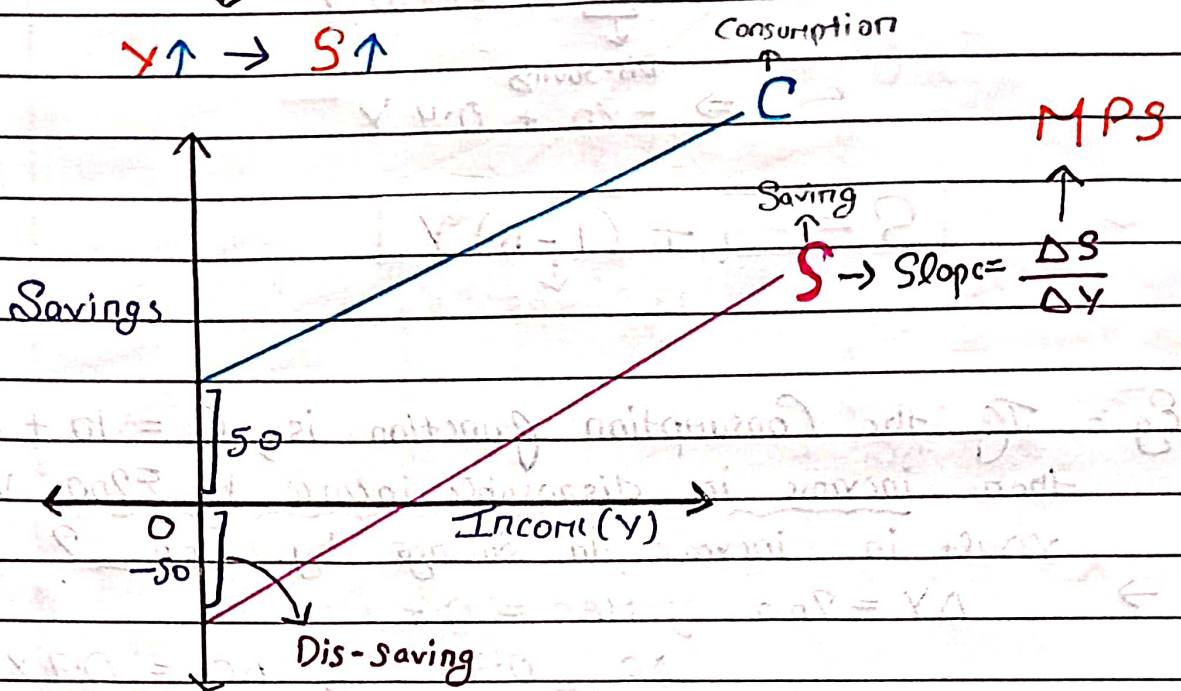 Y↑ → S↑
Consumption
C
MPS
Saving
S → Slope = ΔS/ΔY
Savings
50
0
Income (Y)
-50
Dis-saving